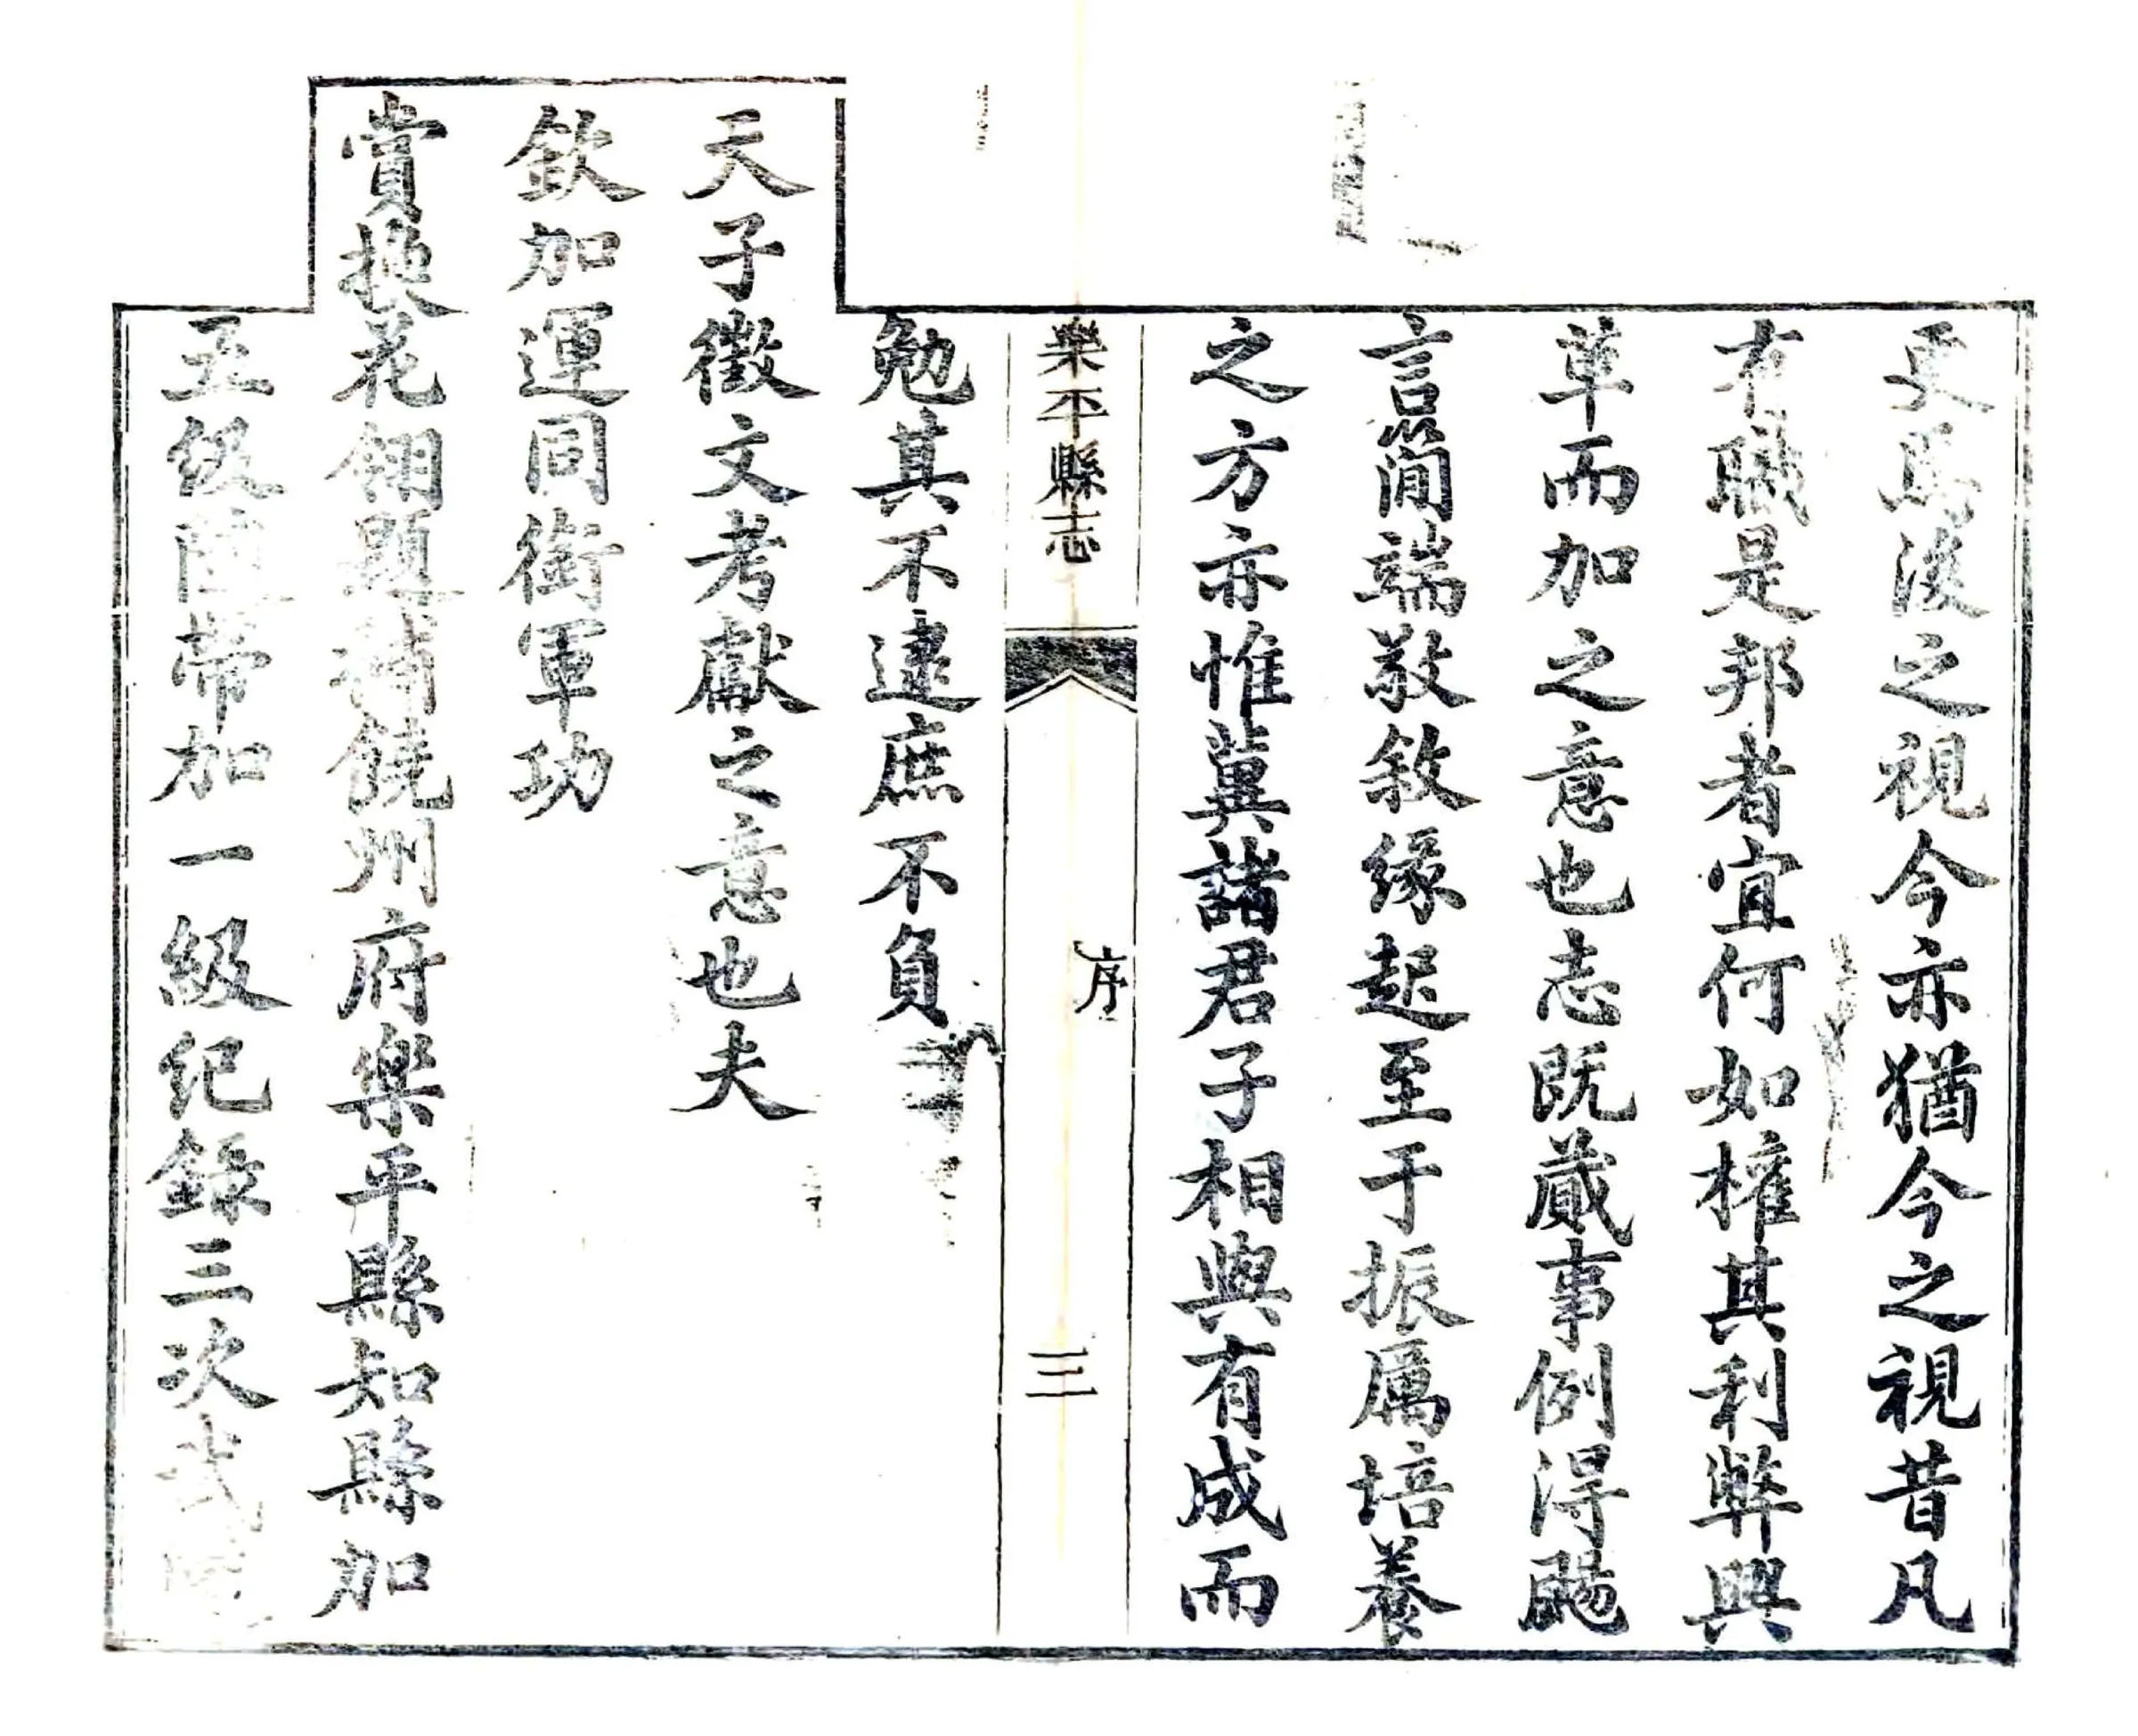 更為後之視今亦猶今之視昔凡
有職是邦者宜何如權其利弊興
革而加之意也志既蕆事例得颺
言簡端敬敘緣起至于振厲培養
之方亦惟冀諸君子相與有成而
樂平縣志
序
三
勉其不逮庶不負
天子徵文考獻之意也夫
欽加運同銜軍功
賞換花翎題補饒州府樂平縣知縣加
五級隨帶加一級紀錄三次武